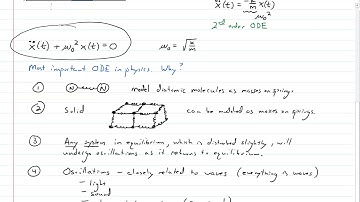 ẍ(t) = -k/m x(t)
ω₀²
2nd order ODE
ẍ(t) + ω₀² x(t) = 0
ω₀ = √(k/m)
Most important ODE in physics. Why?
① N N model diatomic molecules as masses on springs.
② Solid can be modeled as masses on springs.
③ Any system in equilibrium, which is disturbed slightly, will
undergo oscillations as it returns to equilibrium.
④ Oscillations – closely related to waves (everything is waves)
– light
– sound